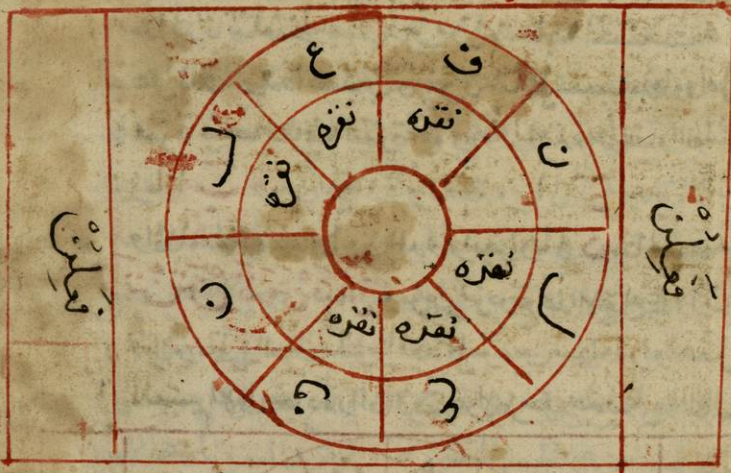 فَعِلُنْ
ف
ع
ل
ن
ف
ع
ل
ن
نقره
نقره
نقره
نقره
نقره
نقره
فَعِلُنْ